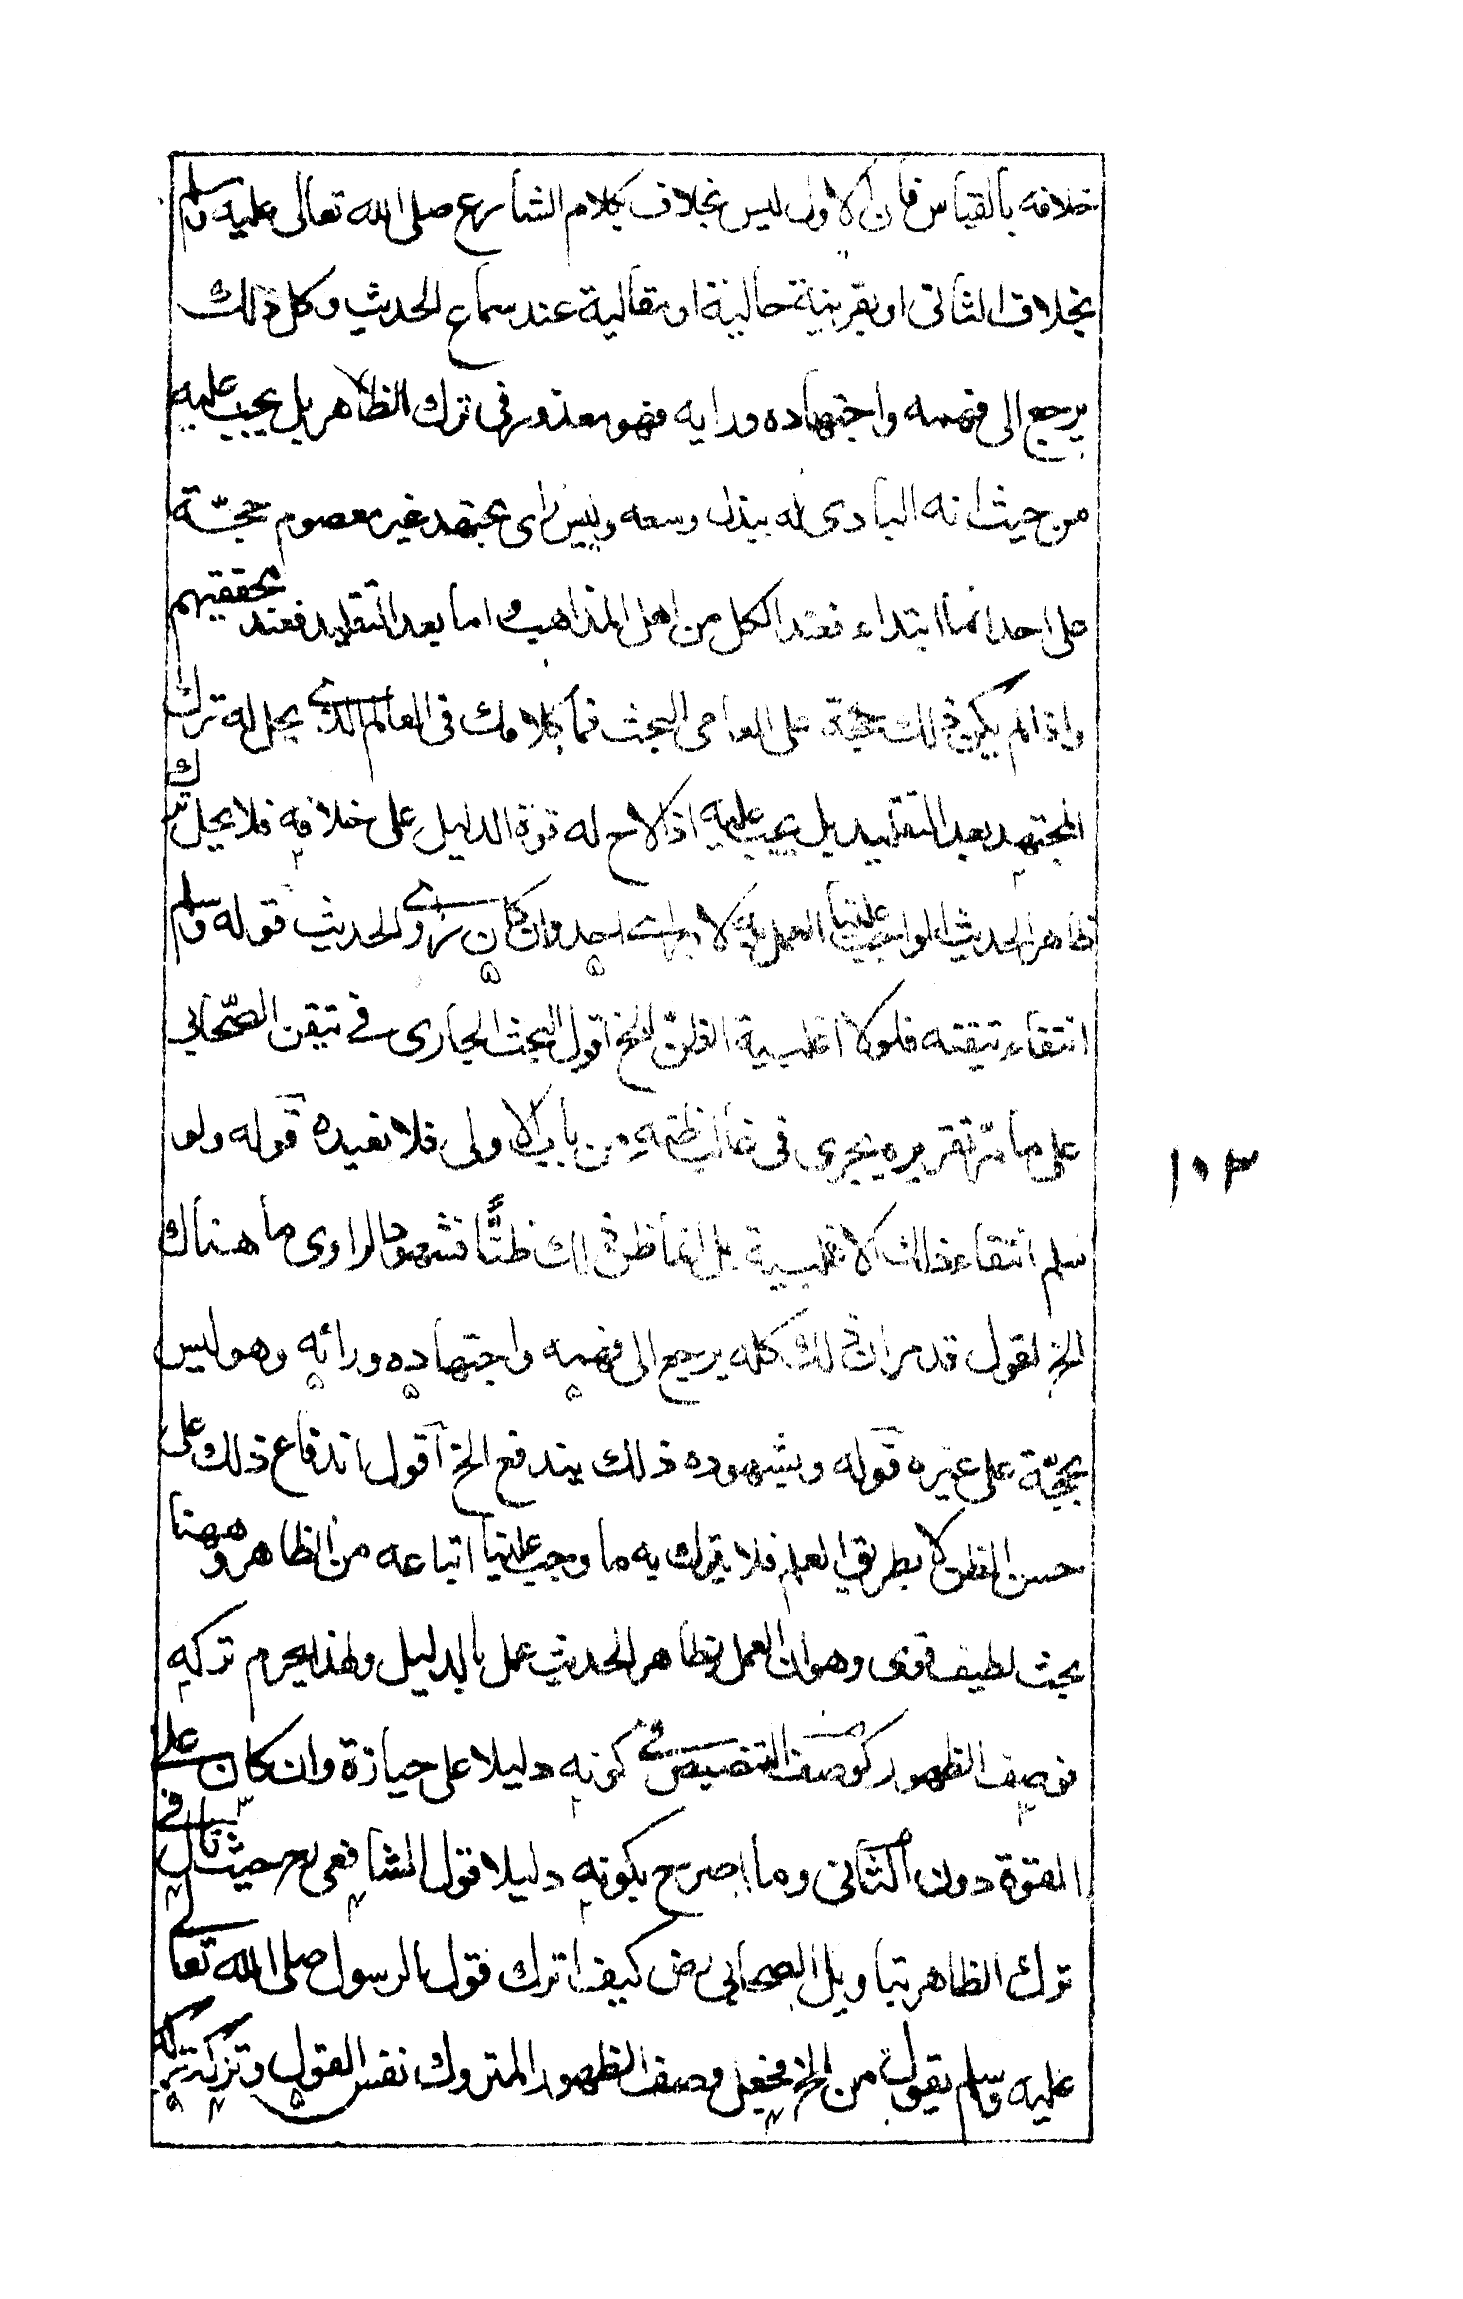 خلافه بالقياس فان الاول ليس بخلاف كلام الشارع صلى الله تعالى عليه وسلم
بخلاف الثانى او بقرينة حالية او مقالية عند سماع الحديث وكل ذلك
يرجع الى فهمه واجتهاده ورايه فهو معذور فى ترك الظاهر بل يجب عليه
من حيث انه البادى له ببذل وسعه وليس راى مجتهد غير معصوم حجّة
على احد انما ابتداء فعند الكل من اهل المذاهب واما بعد التقليد فعند محققيهم
واذا لم يكن ذلك حجة على العامى البحث فما كلامك فى العالم الذى يحل له ترك
المجتهد بعد التقليد بل يجب عليه اذا لاح له قوة الدليل على خلافه فلا يحل ترك
ظاهر الحديث الواجب علينا العمل به لا براى احد وان كان راوى الحديث قوله وسلم
انتفاء تيقنه فلولا اغلبية الظن الخ اقول البحث الجارى فى تيقن الصّحابى
على ما مرّ تقريره يجرى فى غالب ظنه من باب الاولى فلا نعيده قوله ولو
سلم انتفاء ذلك الاغلبية بل انما ظن ذلك ظنًّا فشهود الراوى ما هناك
الخ نقول قد مر ان ذلك كله يرجع الى فهمه واجتهاده ورائه وهو ليس
بحجّة على غيره قوله وبشهوده ذلك يندفع الخ اقول اندفاع ذلك على
حسن الظن لا بطريق العلم فلا يترك به ما وجب علينا اتباعه من الظاهر وههنا
بحث لطيف قوى وهو ان العمل بظاهر الحديث عمل بالدليل ولهذا يحرم تركه
فوصف الظهور كوصف التنصيص فى كونه دليلا على حيازة وان كان على
القوة دون الثانى وما اصرح بكونه دليلا قول الشافعى رح حيث قال فى
ترك الظاهر بتاويل الصحابى رض كيف اترك قول الرسول صلى الله تعالى
عليه وسلم بقول من الخ فجعل وصف الظهور المتروك نفس القول وتركه تركه
١٠٣